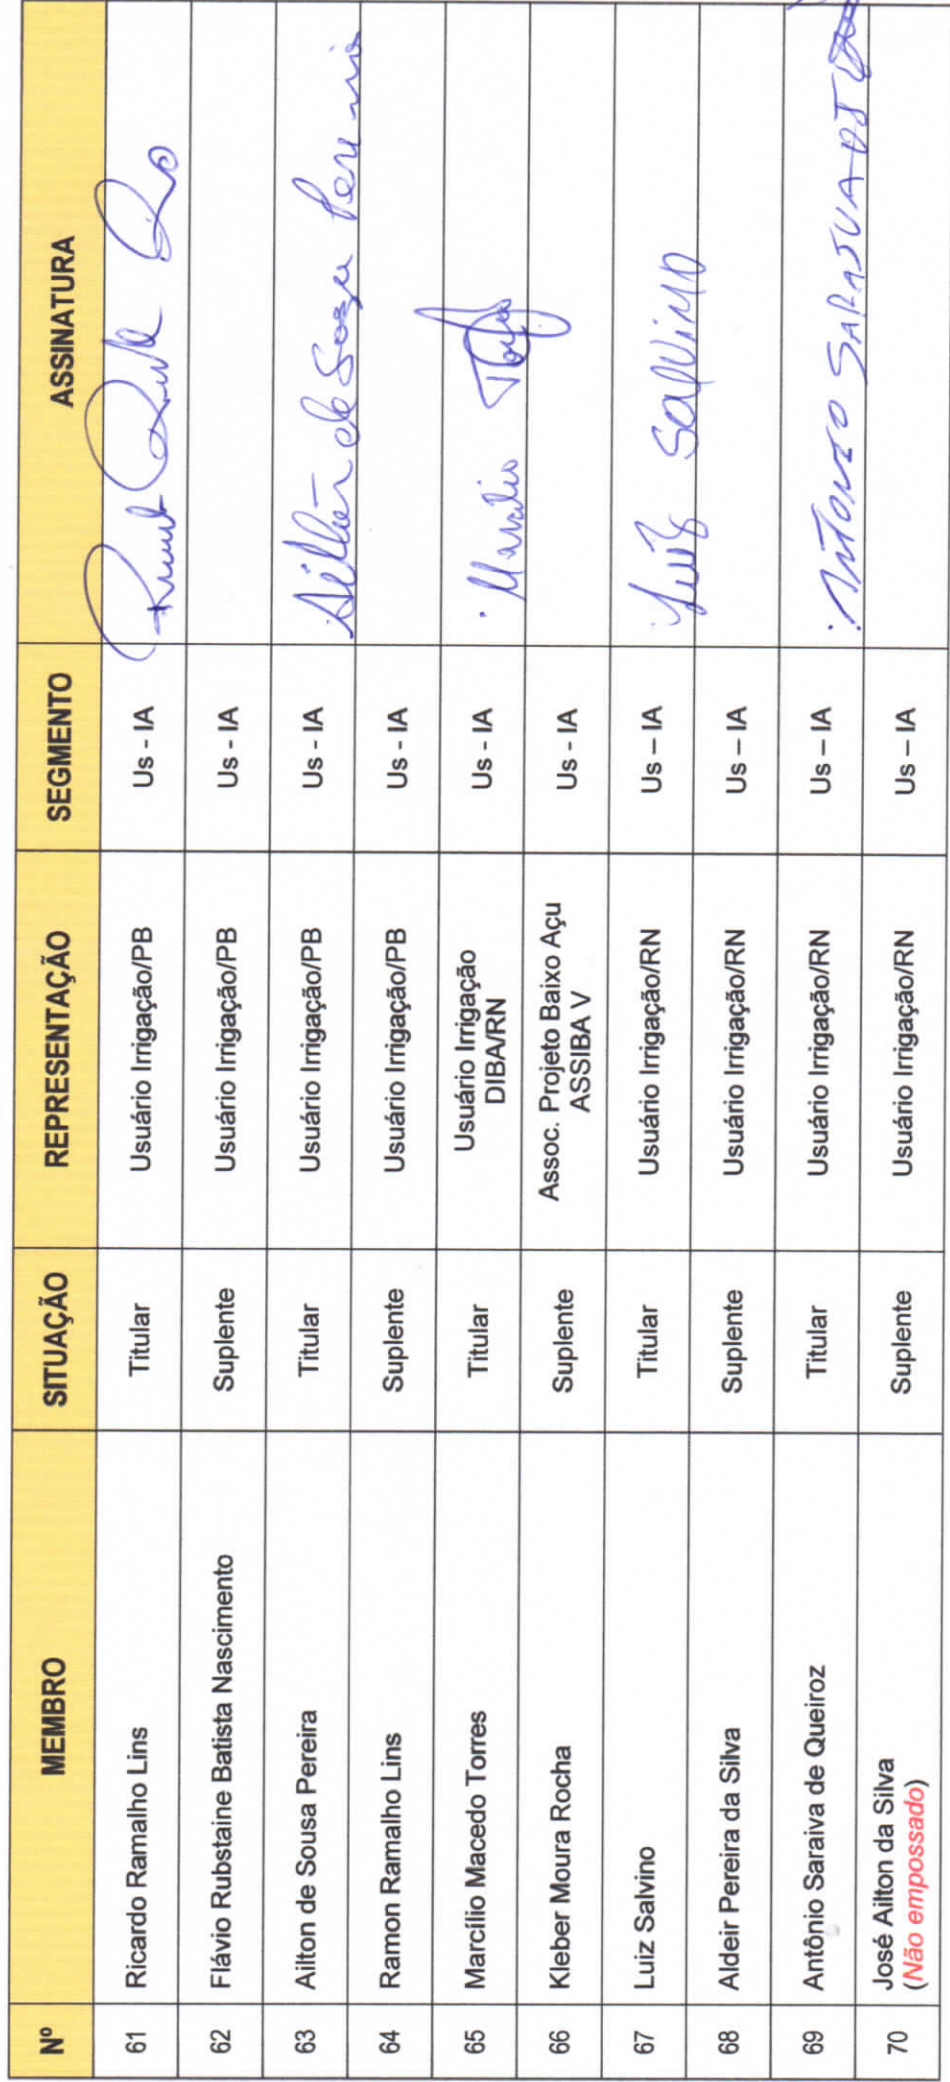 Nº MEMBRO SITUAÇÃO REPRESENTAÇÃO SEGMENTO ASSINATURA
61 Ricardo Ramalho Lins Titular Usuário Irrigação/PB Us - IA
62 Flávio Rubstaine Batista Nascimento Suplente Usuário Irrigação/PB Us - IA
63 Ailton de Sousa Pereira Titular Usuário Irrigação/PB Us - IA Ailton de Souza Pereira
64 Ramon Ramalho Lins Suplente Usuário Irrigação/PB Us - IA
65 Marcílio Macedo Torres Titular Usuário Irrigação
DIBA/RN Us - IA
66 Kleber Moura Rocha Suplente Assoc. Projeto Baixo Açu
ASSIBA V Us - IA
67 Luiz Salvino Titular Usuário Irrigação/RN Us – IA Luiz Salvino
68 Aldeir Pereira da Silva Suplente Usuário Irrigação/RN Us – IA
69 Antônio Saraiva de Queiroz Titular Usuário Irrigação/RN Us – IA
70 José Ailton da Silva
(Não empossado) Suplente Usuário Irrigação/RN Us – IA